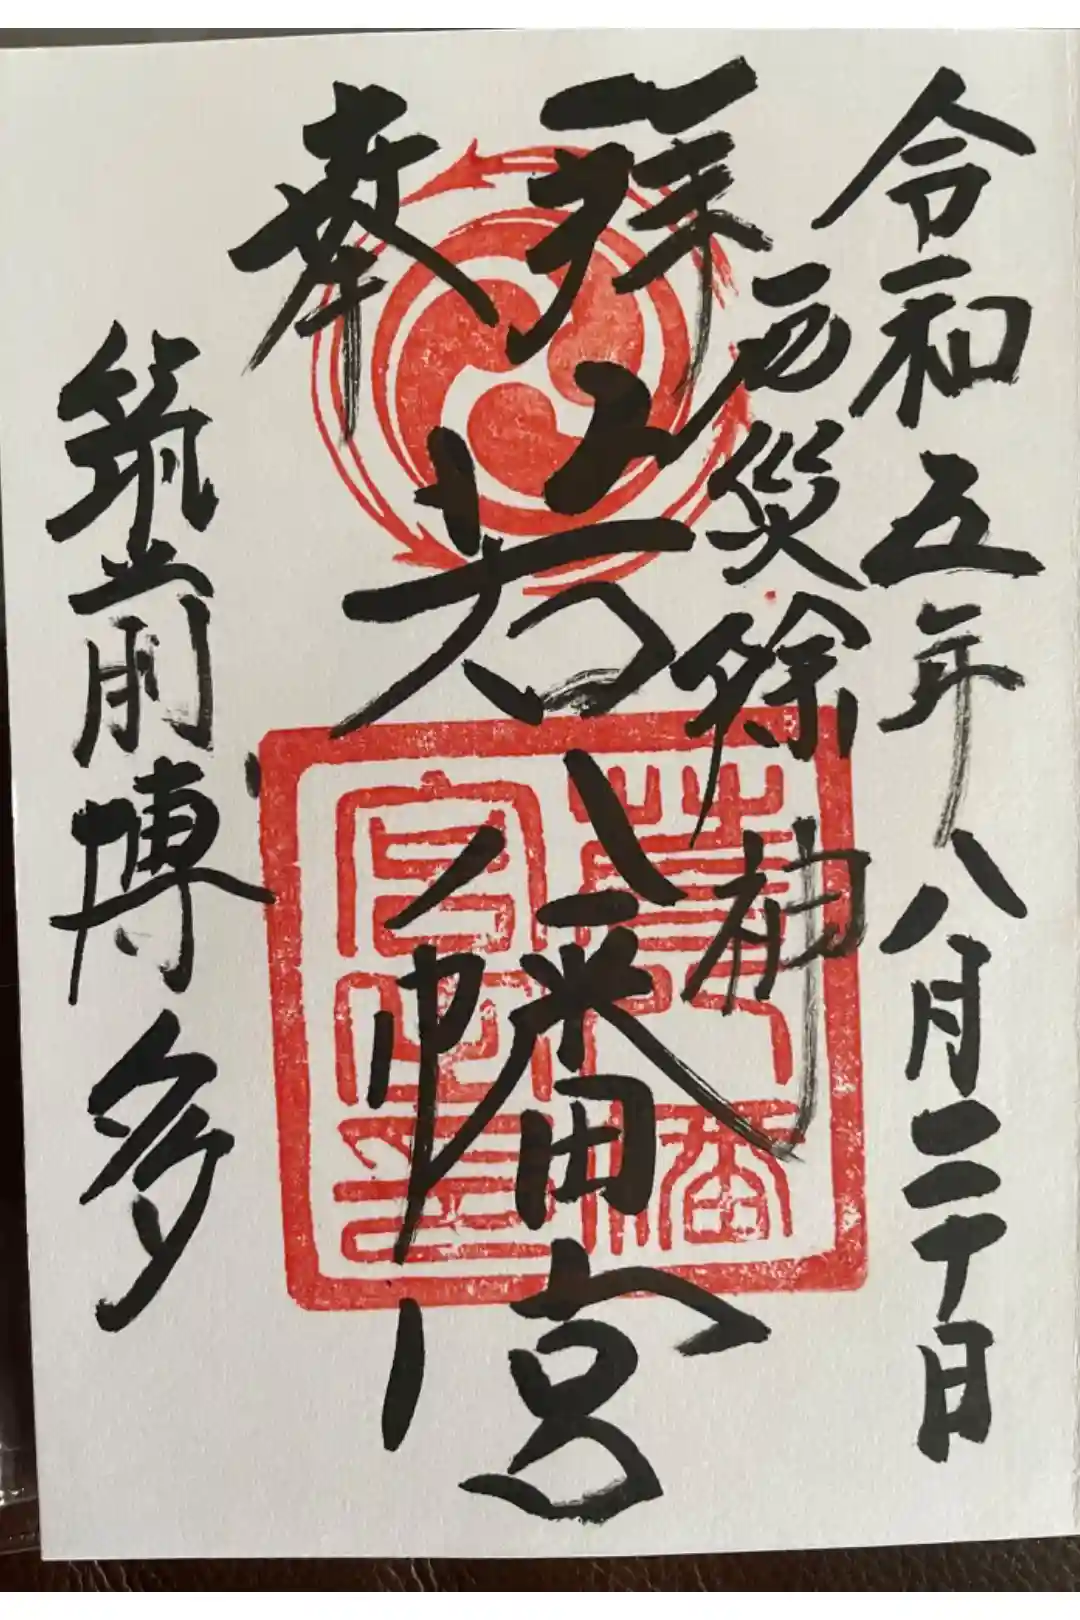 令和五年八月二十日
厄災除神
奉拝
若八幡宮
筑前博多
若八幡
宮之印